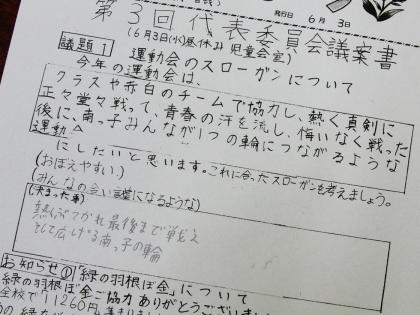 発行日 6月 3日
第3回代表委員会議案書
(6月3日(水)昼休み 児童会室)
議題1 運動会のスローガンについて
今年の運動会は、
クラスや赤白のチームで協力し、熱く真剣に
正々堂々戦って、青春の汗を流し、悔いなく戦った
後に、南っ子みんなが1つの輪につながるような
運動会
にしたいと思います。これに合ったスローガンを考えましょう。
(おぼえやすい。)
(みんなの合い言葉になるような)
(決まった事)
熱くぶつかれ最後まで戦え
そして広げる南っ子の輪
お知らせ① 「緑の羽根ぼ金」について
緑の羽根ぼ金ご協力ありがとうございま
全校で11260円集まりました